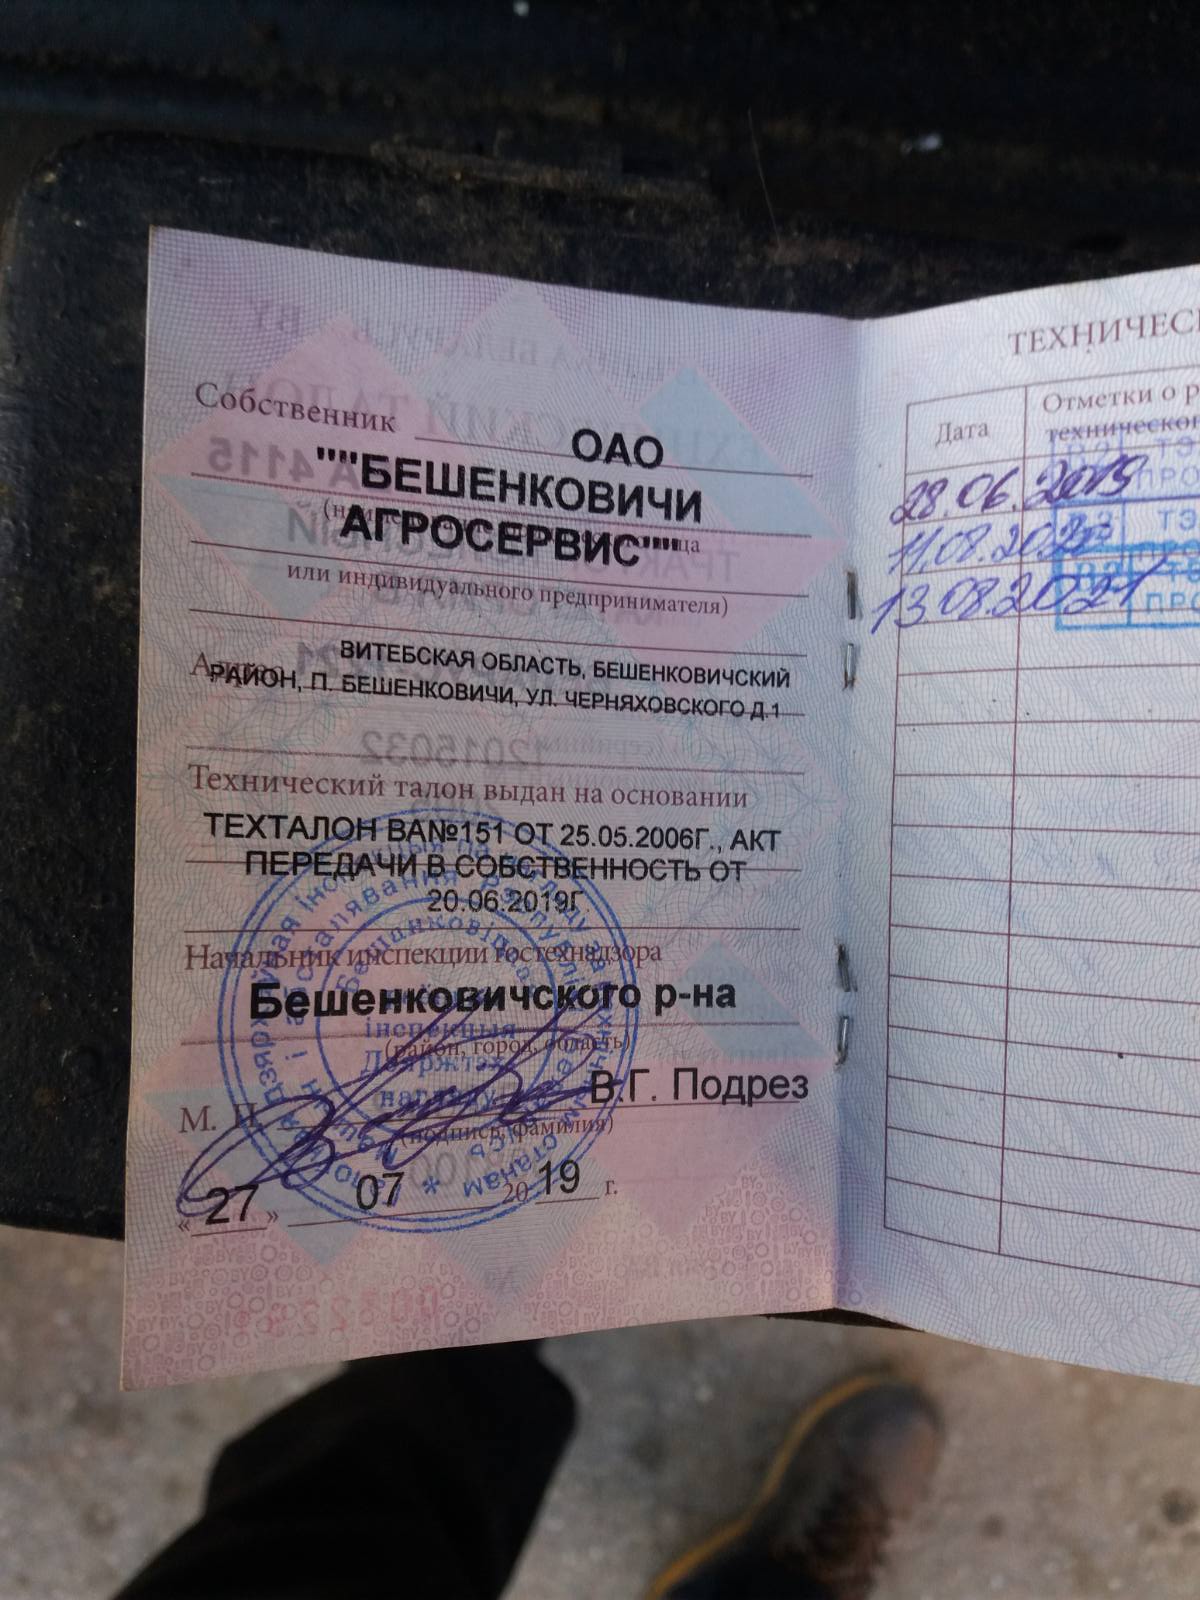 Собственник
ОАО
""БЕШЕНКОВИЧИ
АГРОСЕРВИС""
или индивидуального предпринимателя)
Адрес ВИТЕБСКАЯ ОБЛАСТЬ, БЕШЕНКОВИЧСКИЙ
РАЙОН, П. БЕШЕНКОВИЧИ, УЛ. ЧЕРНЯХОВСКОГО Д.1
Технический талон выдан на основании
ТЕХТАЛОН ВА№151 ОТ 25.05.2006Г., АКТ
ПЕРЕДАЧИ В СОБСТВЕННОСТЬ ОТ
20.06.2019Г
Начальник инспекции гостехнадзора
Бешенковичского р-на
(район, город, область)
В.Г. Подрез
М. П.
(подпись, фамилия)
« 27 » 07 20 19 г.
ТЕХНИЧЕС
Дата
Отметки о р
технического
28.06.2019
11.08.
13.08.2021
ПРО